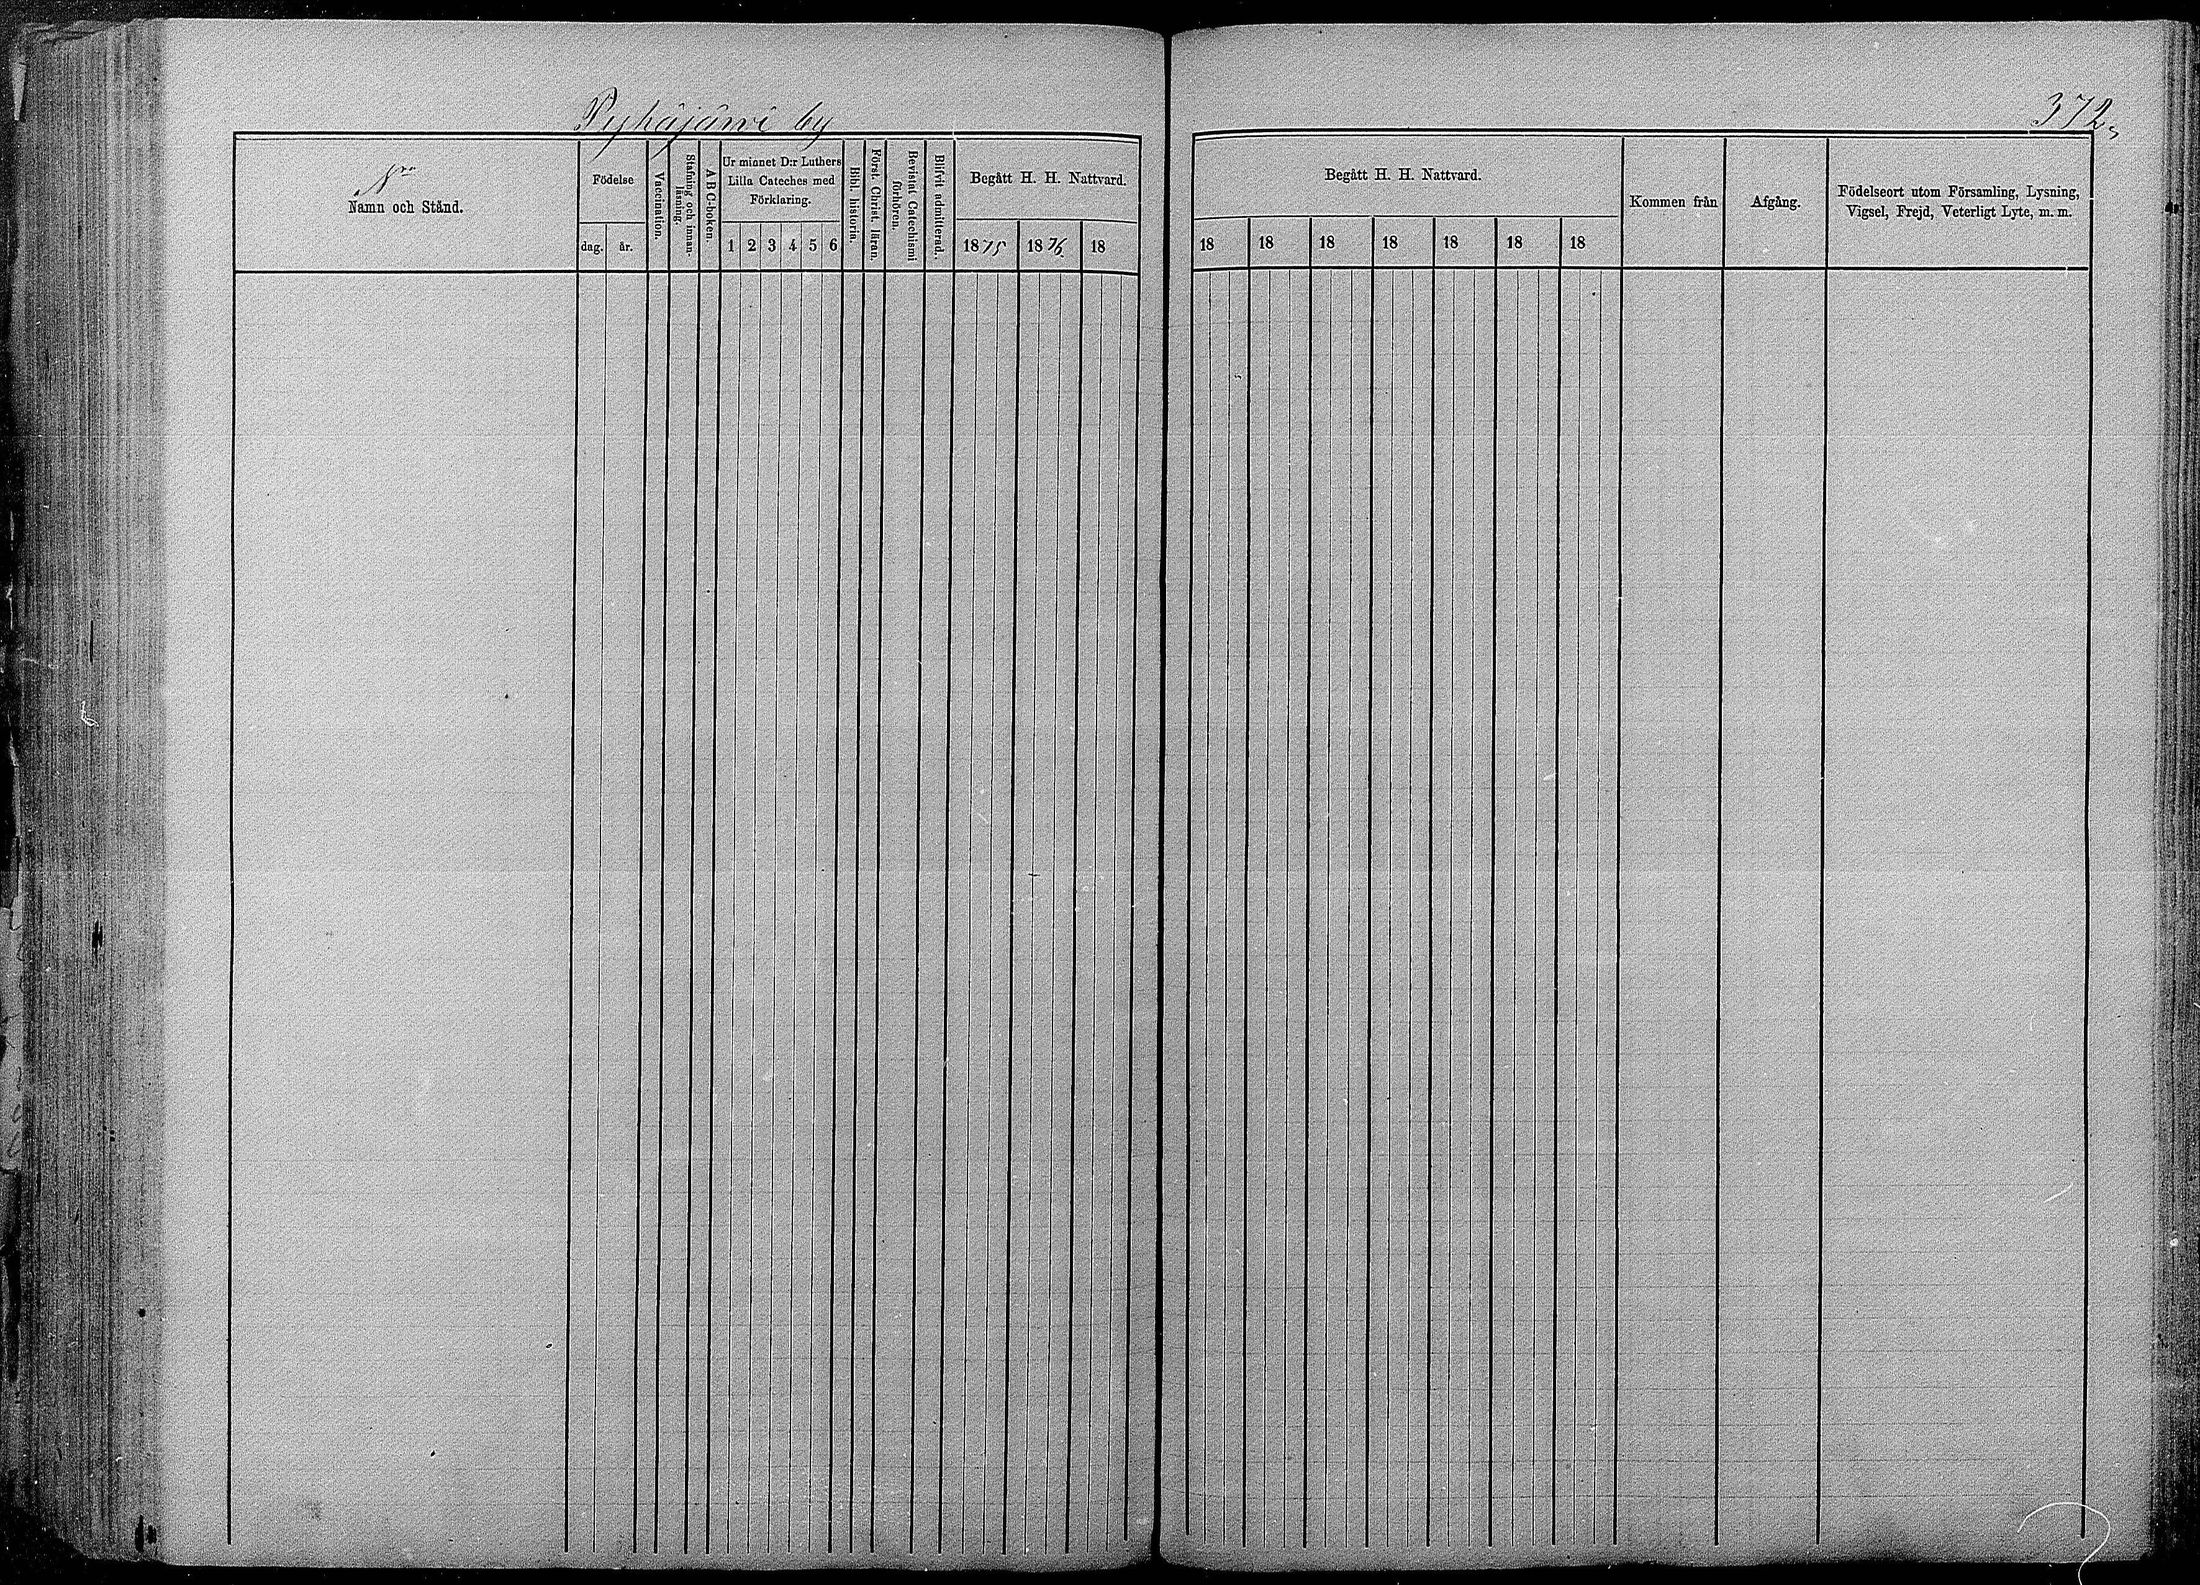 Pyhäjärvi by
372
Nro
Namn och Stånd.
Födelse
dag.
år.
Vaccination.
Stafning och innan-
läsning.
A B C-boken.
Ur minnet D:r Luthers
Lilla Cateches med
Förklaring.
1 2 3 4 5 6
Bibl. historia.
Först. Christ. läran.
Bevistat Catechismi
förhören.
Blifvit admitterad.
Begått H. H. Nattvard.
1875 1876 18
Begått H. H. Nattvard.
18 18 18 18 18 18 18
Kommen från
Afgång.
Födelseort utom Församling, Lysning,
Vigsel, Frejd, Veterligt Lyte, m. m.